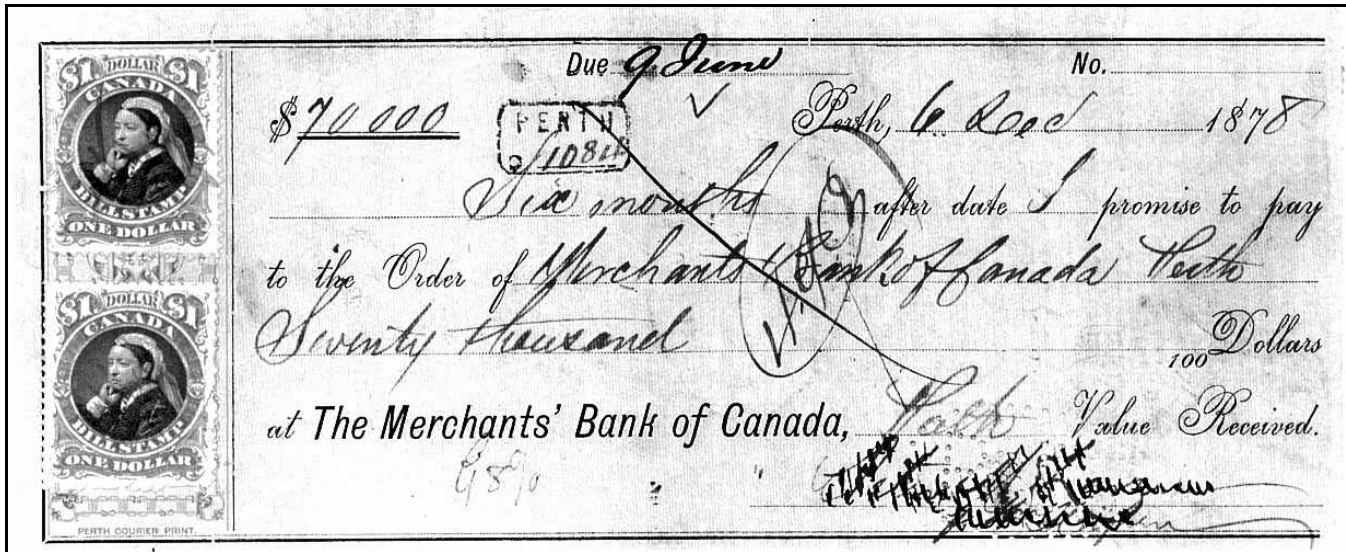 $1 DOLLAR $1
CANADA
BILL STAMP
ONE DOLLAR
$1 DOLLAR $1
CANADA
BILL STAMP
ONE DOLLAR
PERTH COURIER PRINT.
Due 9 June No.
$70 000 PERTH Perth, 6 Decd 1878
Six months after date I promise to pay
to the Order of Merchants Bank of Canada Perth
Seventy thousand 100 Dollars
at The Merchants' Bank of Canada, Perth Value Received.